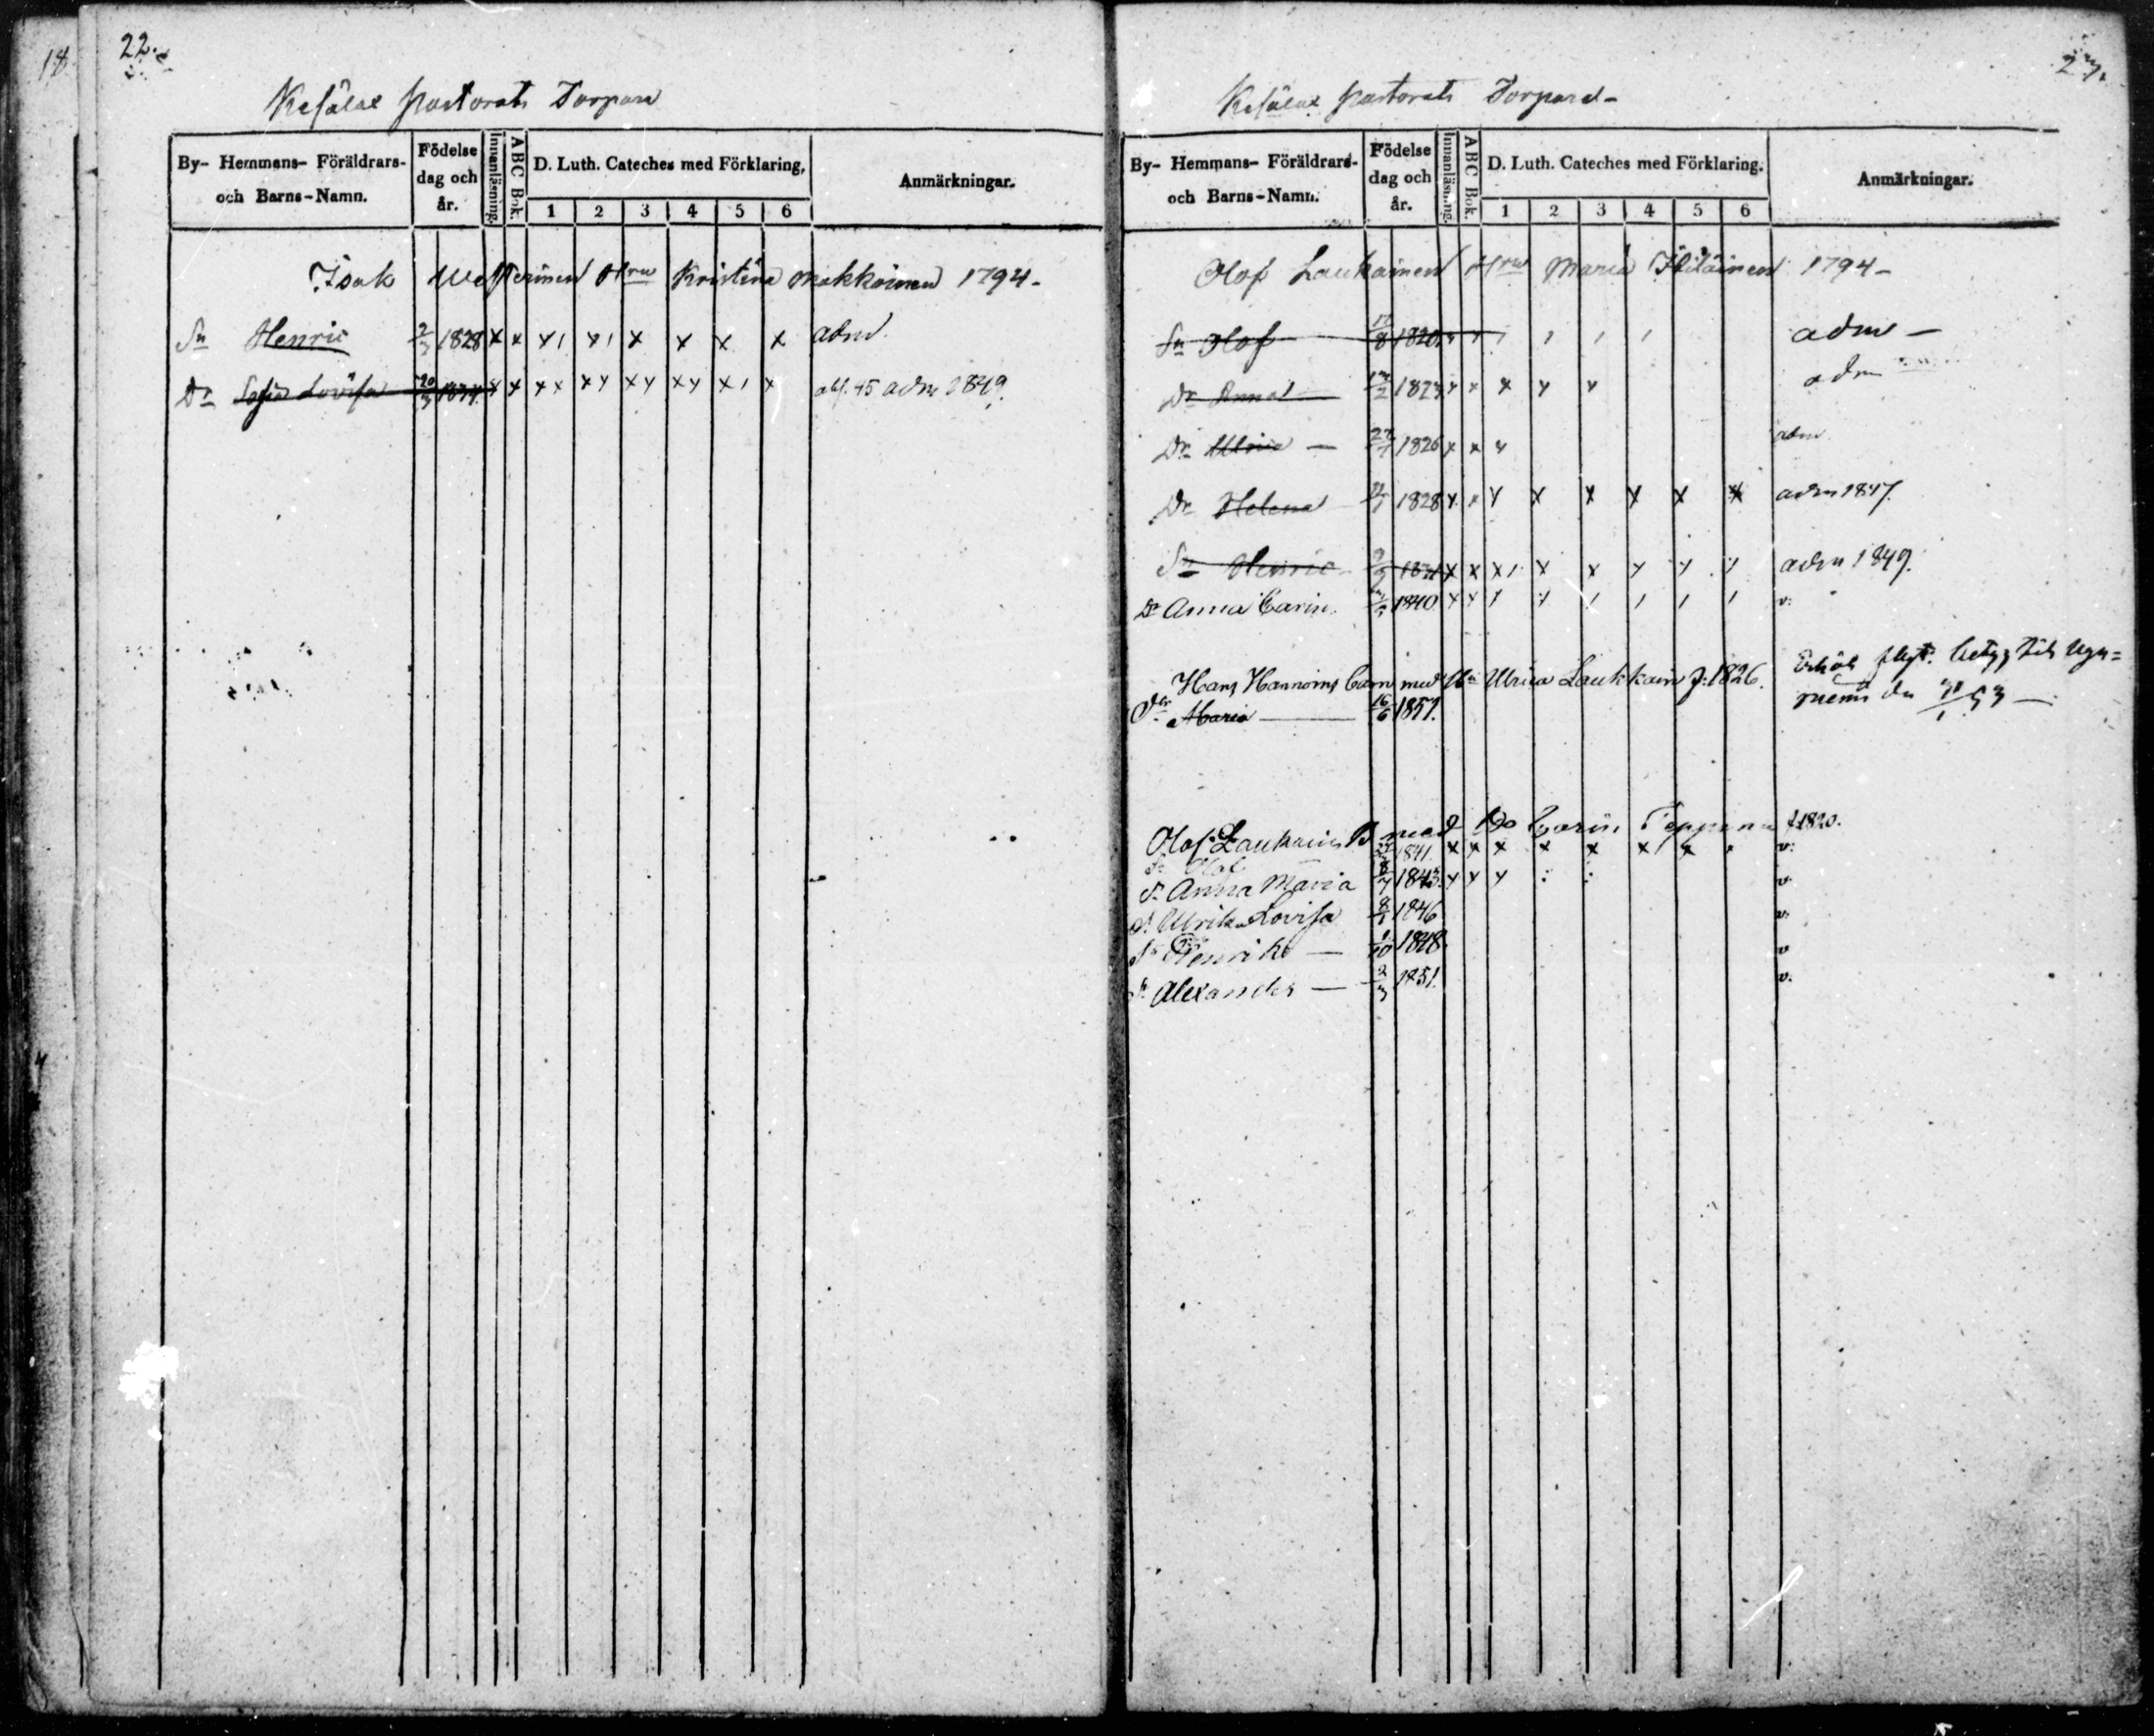 18
22.
Kesälax Pastorats Torpare
By- Hemmans- Föräldrars- och Barns-Namn.
Födelse dag och år.
Innanläsning.
ABC Bok.
D. Luth. Cateches med Förklaring,
1 2 3 4 5 6
Anmärkningar.
Isak Westerinen Hru Kristina Makkoinen 1794-
Sn Henric 2/3 1828 x x x1 x1 x x x x adm.
Dr Sofia Lovisa 20/3 x x xx xx xx xx x1 x abs. 45 adm 1849.
23.
Kesälax Pastorats Torpare-
By- Hemmans- Föräldrars- och Barns-Namn.
Födelse dag och år.
Innanläsning.
ABC Bok.
D. Luth. Cateches med Förklaring.
1 2 3 4 5 6
Anmärkningar.
Olof Laukainen Hru Maria 1794-
Sn Olof 1820 adm -
Dr Anna 1823 x x x x x adm
Dr Ulrica - 1826 x x x adm
Dr Helena 1828 x x x x x x x x adm 1847.
Sn Henric x x x1 x x x x x adm 1849.
Dr Anna Carin. 1840 x x v.
Hans Hannoins barn med Ulrica Laukkain f. 1826. Erhöl flyt. betyg till Ugu=
Dr Maria 16/6 1851. niemi den 31/1 53 -
Olof Laukain B med Ho Carin f. 1820.
Sn Olof 1841. x x x x x x x v.
Dr Anna Maria 1843. x x x v.
Dr Ulrika Lovisa 8/1 1846 v.
Sn Henrik - 1/10 1848. v.
Sn Alexander - 2/3 1851. v.